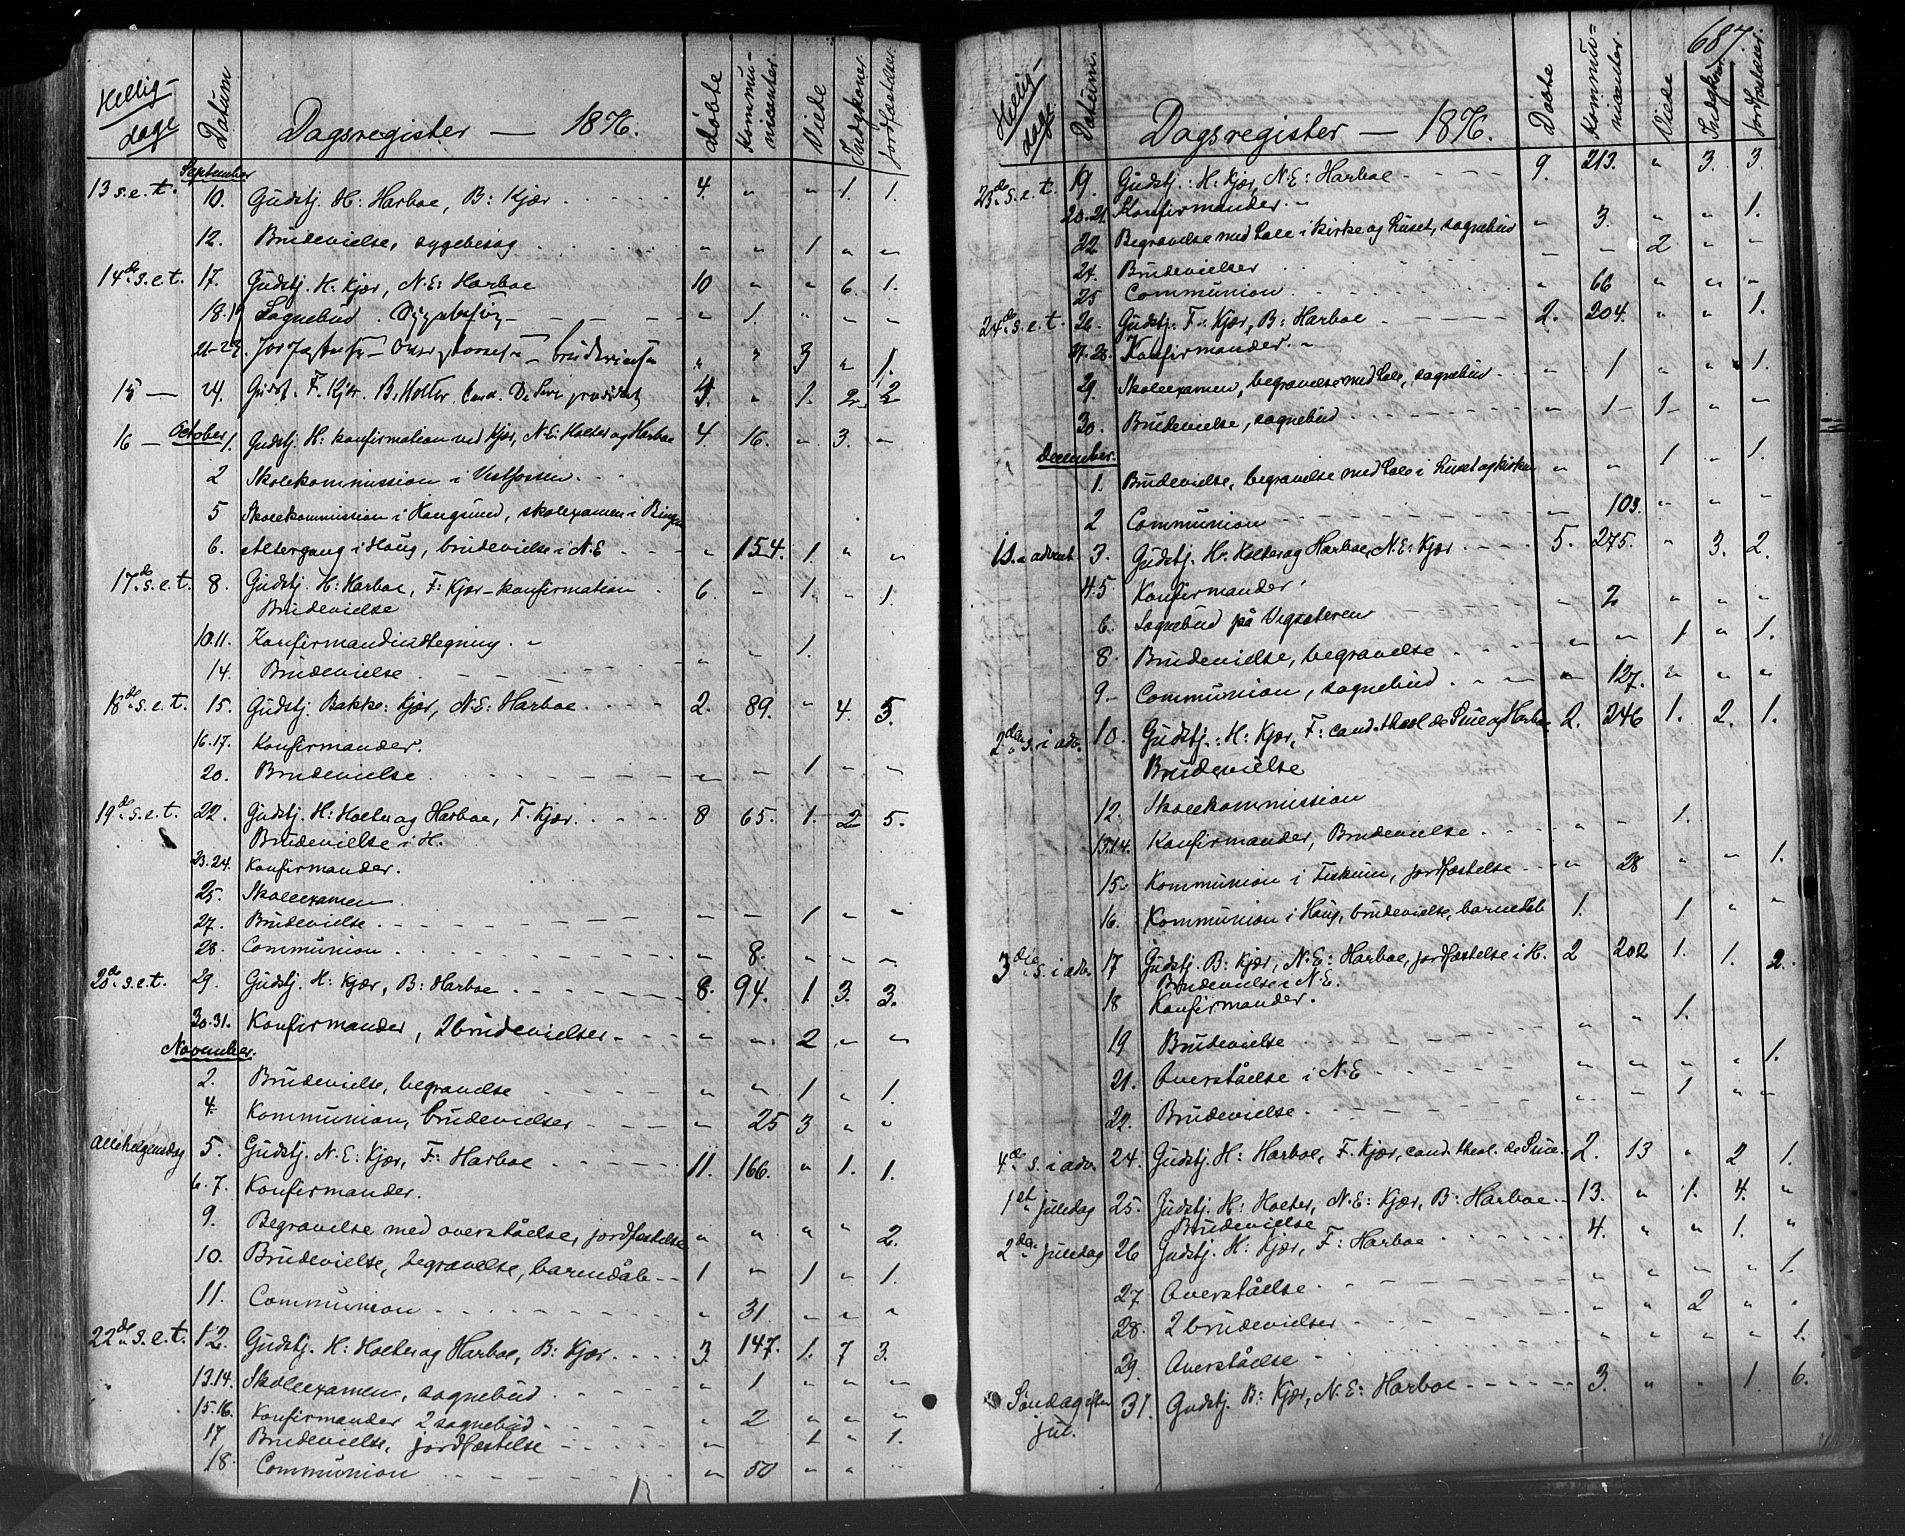 Hellig-dage Datum Dagsregister — 1876. døbte Kommunikanter Viede Indgkoner jordfæstelser
September
13 s.e.t. 10. Gudstj. H: Harboe, B: Kjær . . . . . 4. " " 1. 1.
12. Brudevielse, sygebesøg . . . . . " " 1 " "
14de s.e.t. 17. Gudstj. H: Kjær, N.E: Harboe 10 " " 6. 1.
18.19 Sognebud. Sygebesøg - - - - " 1. " " "
21-23. - brudevielse " " 3 " 1.
15 — 24. Gudst. F. Kjær. B. Holter. Cand. 4. " 1. 2. 2
16 — October 1. Gudstj. H: konfirmation ved Kjær, N.E: Holter og Harboe 4. 16. " 3. "
2 Skolekommission i Vestfossen. . .
5 Skolekommission i Hougsund, skolexamen i Bingen
6. Altergang i Houg, brudevielse i N.E - - - " 154. 1. " "
17de s.e.t. 8. Gudstj. H: Harboe, F: Kjær - konfirmation . 6. " 1. " 1.
Brudevielse
10.11. Konfirmandindtegning . "
14. Brudevielse . - - - - " " 1.
18de s.e.t. 15. Gudstj. Bakke: Kjær, N.E: Harboe . . . . 2. 89. " 4. 5.
16.17. Konfirmander.
20. Brudevielse . . . . . " " 1 " "
19de s.e.t. 22. Gudstj. H: Holter og Harboe, F. Kjær. . . . 8 65. 1. 2 5.
Brudevielse i H.
23.24. Konfirmander.
25. Skolexamen
27. Brudevielse . - - - - - " " 1 " "
28. Communion . . . . . " 8. " " "
20de s.e.t. 29. Gudstj. H: Kjær, B: Harboe . - - - - 8. 94. 1. 3. 3.
30.31. Konfirmander, 2 brudevielser. - - - " " 2 " "
November.
2. Brudevielse, begravelse - - - " " 1 " 1.
4. Kommunion, brudevielser . - - - " 25 3 " "
Allehelgensdag 5. Gudstj. N.E: Kjær, F: Harboe . - - - - 11. 166. " 1. 1.
6.7. Konfirmander.
9. Begravelse med overståelse, jordfæstelse " " " " 2.
10. Brudevielse, begravelse, barnedåb - - 1 " 1 " 1.
11. Communion - - - - - - " 31. " " "
22de s.e.t. 12. Gudstj. H: Holter og Harboe, B: Kjær. . . . 3. 147. 1. 7 3.
13.14. Skolexamen, sognebud . - - - - " 1 " " "
15.16. Konfirmander 2 sognebud . - - - " 2 " " "
17 Brudevielse, jordfæstelse - - - - " 1 " 1.
18. Communion . . - - - - " 50 " " "
687.
Hellig-dage Datum. Dagsregister — 1876. Døbte Kommunikanter Viede Indgkon. jordfæstelser.
23de s.e.t. 19. Gudstj.: H: Kjær, N.E: Harboe - - - - 9. 213. " 3. 3.
20.21. Konfirmander. "
22. Begravelse med tale i kirke og huset, sognebud " 3. " " 1.
24. Brudevielser . . . . . " " 2 " "
25 Communion . . . . . " 66 " " "
24de s.e.t. 26. Gudstj. F: Kjær, B: Harboe - - - - 2. 204. " " 1.
27.28. Konfirmander. "
29. Skolexamen, begravelse med tale, sognebud . . . " 1 " " 1.
30. Brudevielse, sognebud . - - - - - " 1 1 " "
December.
1. Brudevielse, begravelse med tale i huset og kirken " " 1 " 1.
2 Communion - - - - - - " 103. " " "
1s. i advent 3. Gudstj. H. Holter og Harboe, N.E: Kjær - - - - 5. 275. " 3. 2.
4.5 Konfirmander.
6. Sognebud på - " 2 " " "
8. Brudevielse, begravelse . . . . . " " 1 " 1.
9. Communion, sognebud . . . " 127. " " "
2den s. i adv. 10. Gudstj.: H: Kjær, F: cand. theol. de Pine og Harboe 2. 246 1. 2. 1.
Brudevielse
12. Skolekommission
13.14. Konfirmander, Brudevielse . - - - - " " 1.
15. Kommunion i Fiskum, jordfæstelse - - - " 28 " " 1.
16. Kommunion i Houg, brudevielse, barnedåb 1. 1 " "
3die s. i adv. 17 Gudstj. B: Kjær, N.E: Harboe, jordfæstelse i H. 2 202 1. 1. 2.
Brudevielse i N.E.
18 Konfirmander.
19 Brudevielse - - - - - " " 1.
21. Overståelse i N.E - - - - - " " " " 1.
22. Brudevielse . - - - - - " " 1 " "
4de s. i adv. 24. Gudstj. H: Harboe, F. Kjær, cand. theol. de Pine - 2. 13 " 2 1.
1ste juledag 25. Gudstj. H: Holter, N.E: Kjær, B: Harboe - - 13. " 1. 4. "
Brudevielse
2den juledag 26 Gudstj. H: Kjær, F: Harboe . . . . . 4. " " 1. "
27. Overståelse . - - - - - " " " " 1.
28. 2 brudevielser . . . . . " " 2 " "
29. Overståelse . - - - - " " " " 1.
Søndag efter jul. 31. Gudstj. B: Kjær, N.E: Harboe - - - - - 3. " " 1 6.